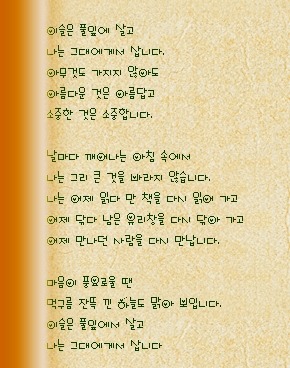 이슬은 풀잎에 살고
나는 그대에게서 삽니다.
아무것도 가지지 않아도
아름다운 것은 아름답고
소중한 것은 소중합니다.

날마다 깨어나는 아침 속에서
나는 그리 큰 것을 바라지 않습니다.
나는 어제 읽다 만 책을 다시 읽어 가고
어제 닦다 남은 유리창을 다시 닦아 가고
어제 만나던 사람을 다시 만납니다.

마음이 풍요로울 땐
먹구름 잔뜩 낀 하늘도 맑아 보입니다.
이슬은 풀잎에서 살고
나는 그대에게서 삽니다